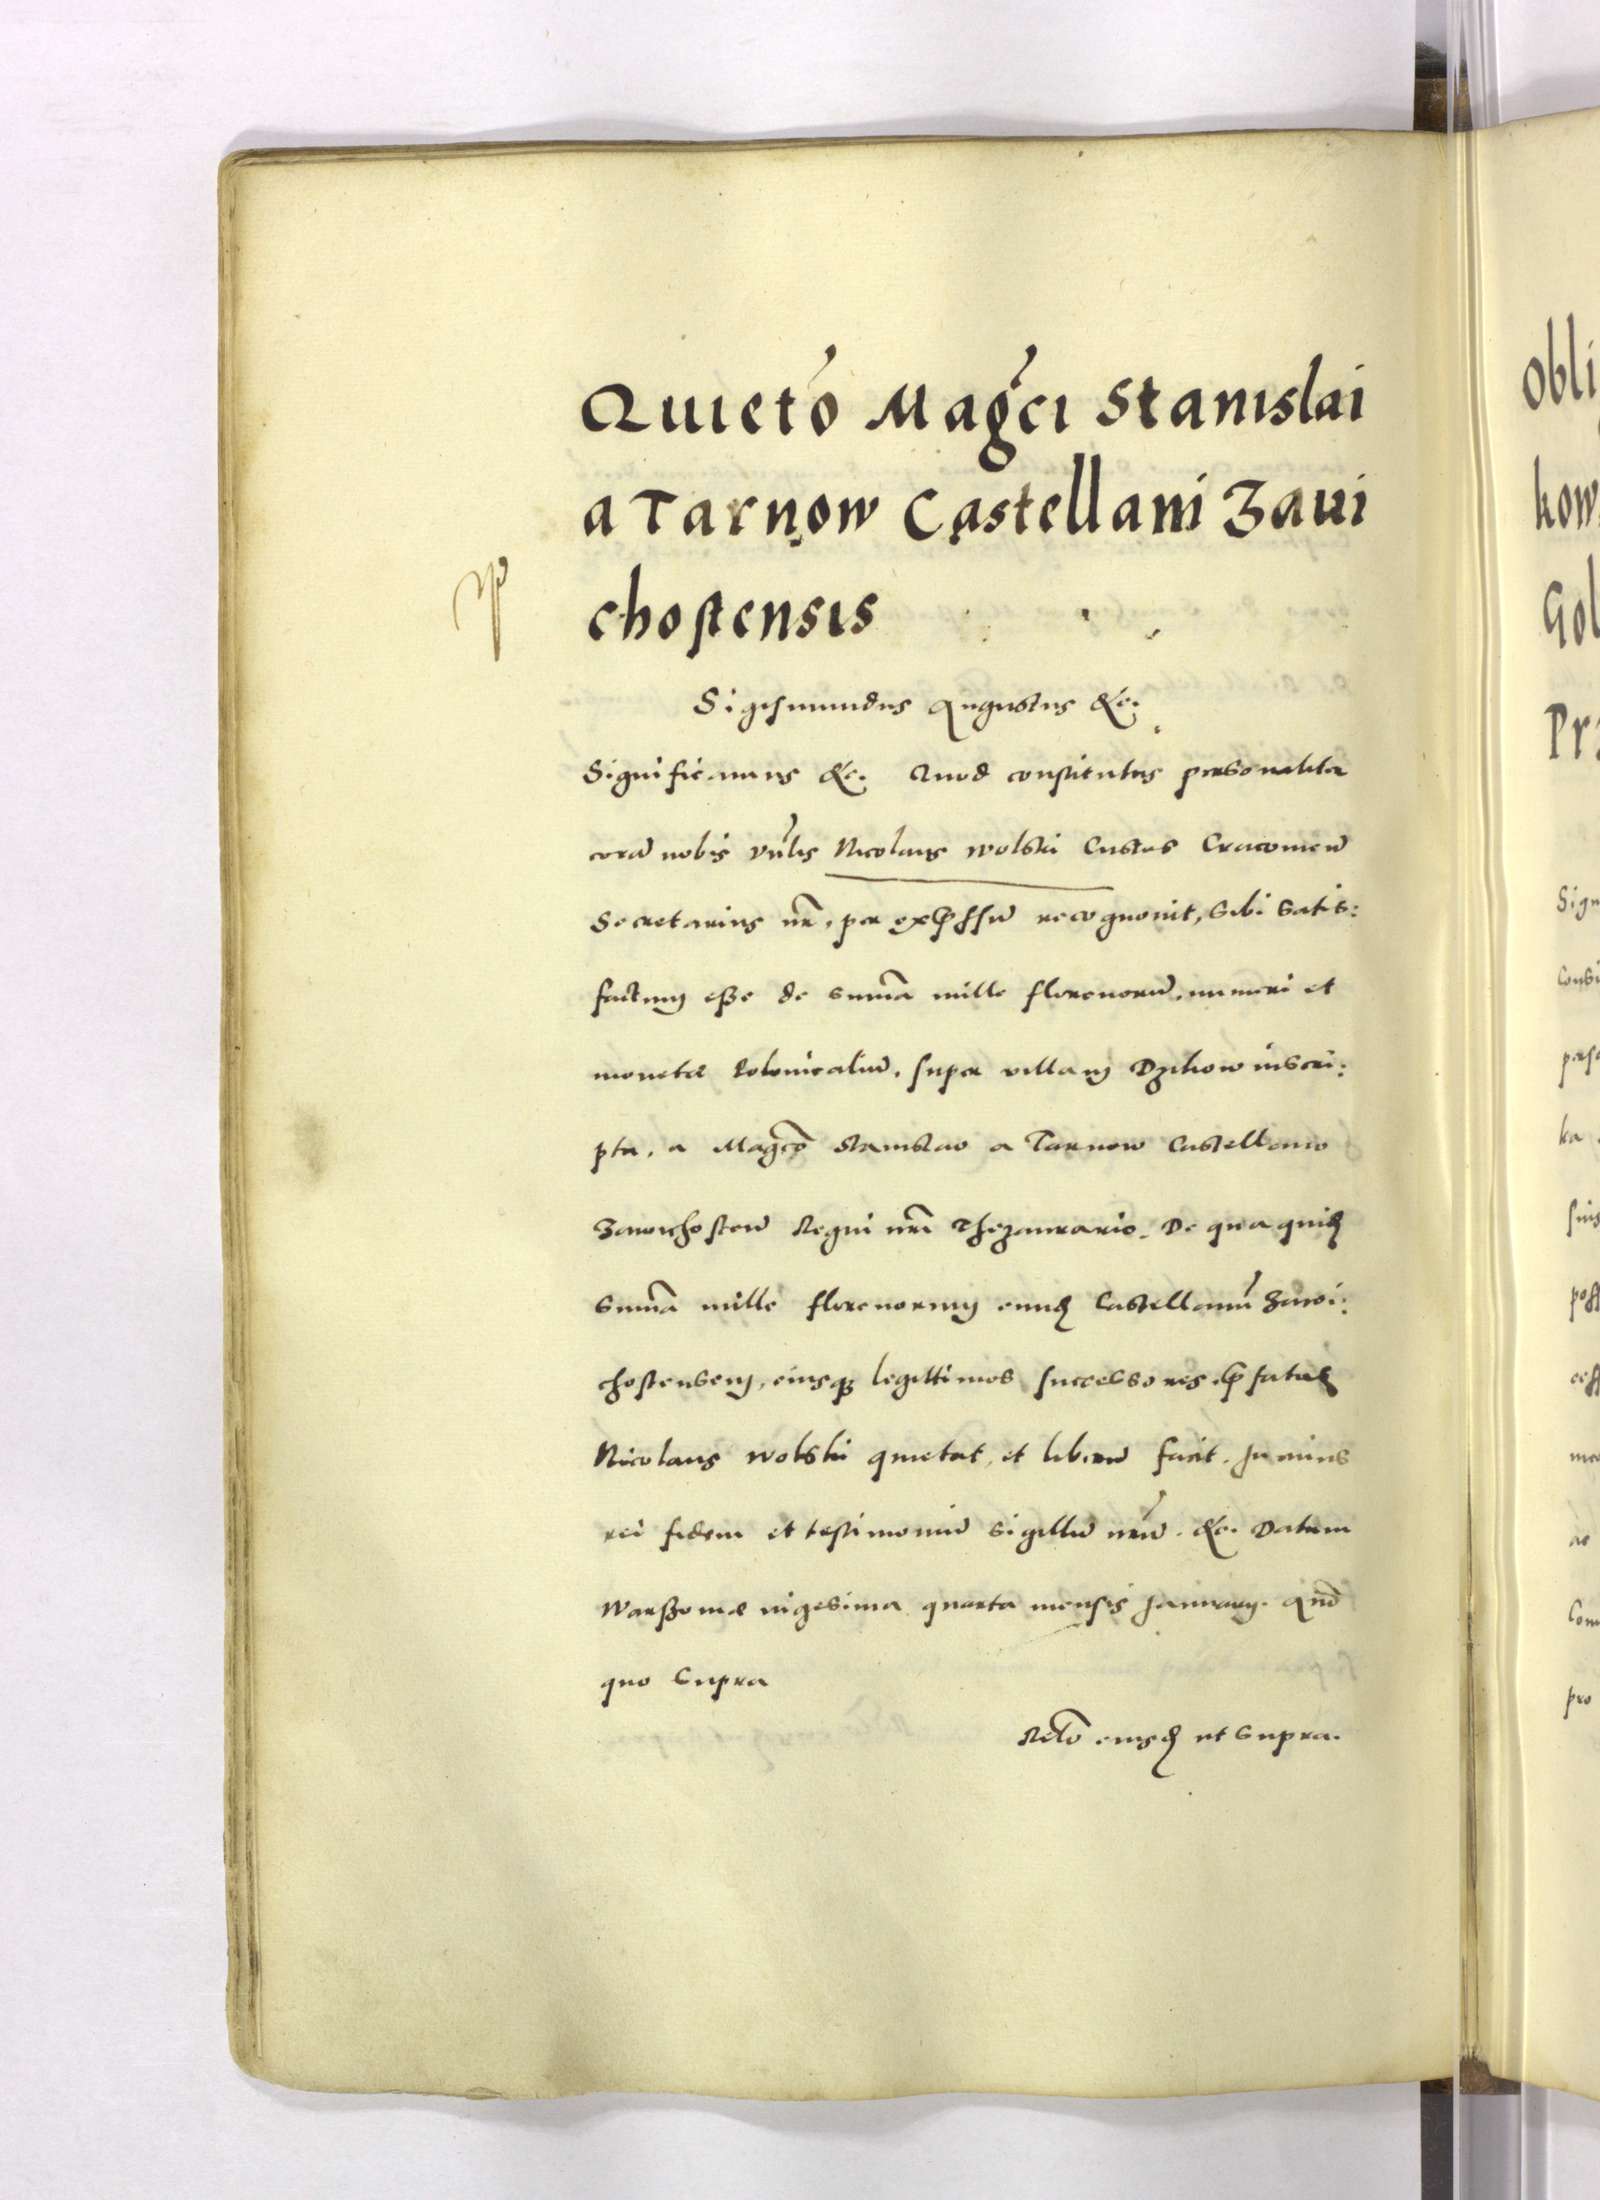 Quieto Mag̃ci Stanislai
a Tarnow Castellani Zaui
chostensis
Sigismundus Augustus &c.
Significamus &c. Quod constitutus personaliter
corā nobis vn̄lis Nicolaus wolski Custos Cracouień
Secretarius nr̄, per exp̄ssū recognouit, sibi satis:
factum esse de sum̄a mille florenorū, numeri et
monetæ Polonicaliū, super villam Dzikow inscri:
pta, a Mag̃co Stanislao a Tarnow Castellano
Zawichosteń Regni nr̄i Thezaurario. De qua quidē
sum̄a mille florenorum eundē Castellanū Zawi:
chostensem, eiusq3 legittimos successores, p̄fatus
Nicolaus wolski quietat, et liberū facit. In cuius
rei fidem et testimoniū sigillū nr̄ū. &c. Datum
Warszouiæ vigesima quarta mensis Januarij. Anō
quo supra
Relō eiusdē ut supra.
Obli
kow
Gol
Prz
Sign
consi
perso
ka
suis
poss
cess
ac
com
pro